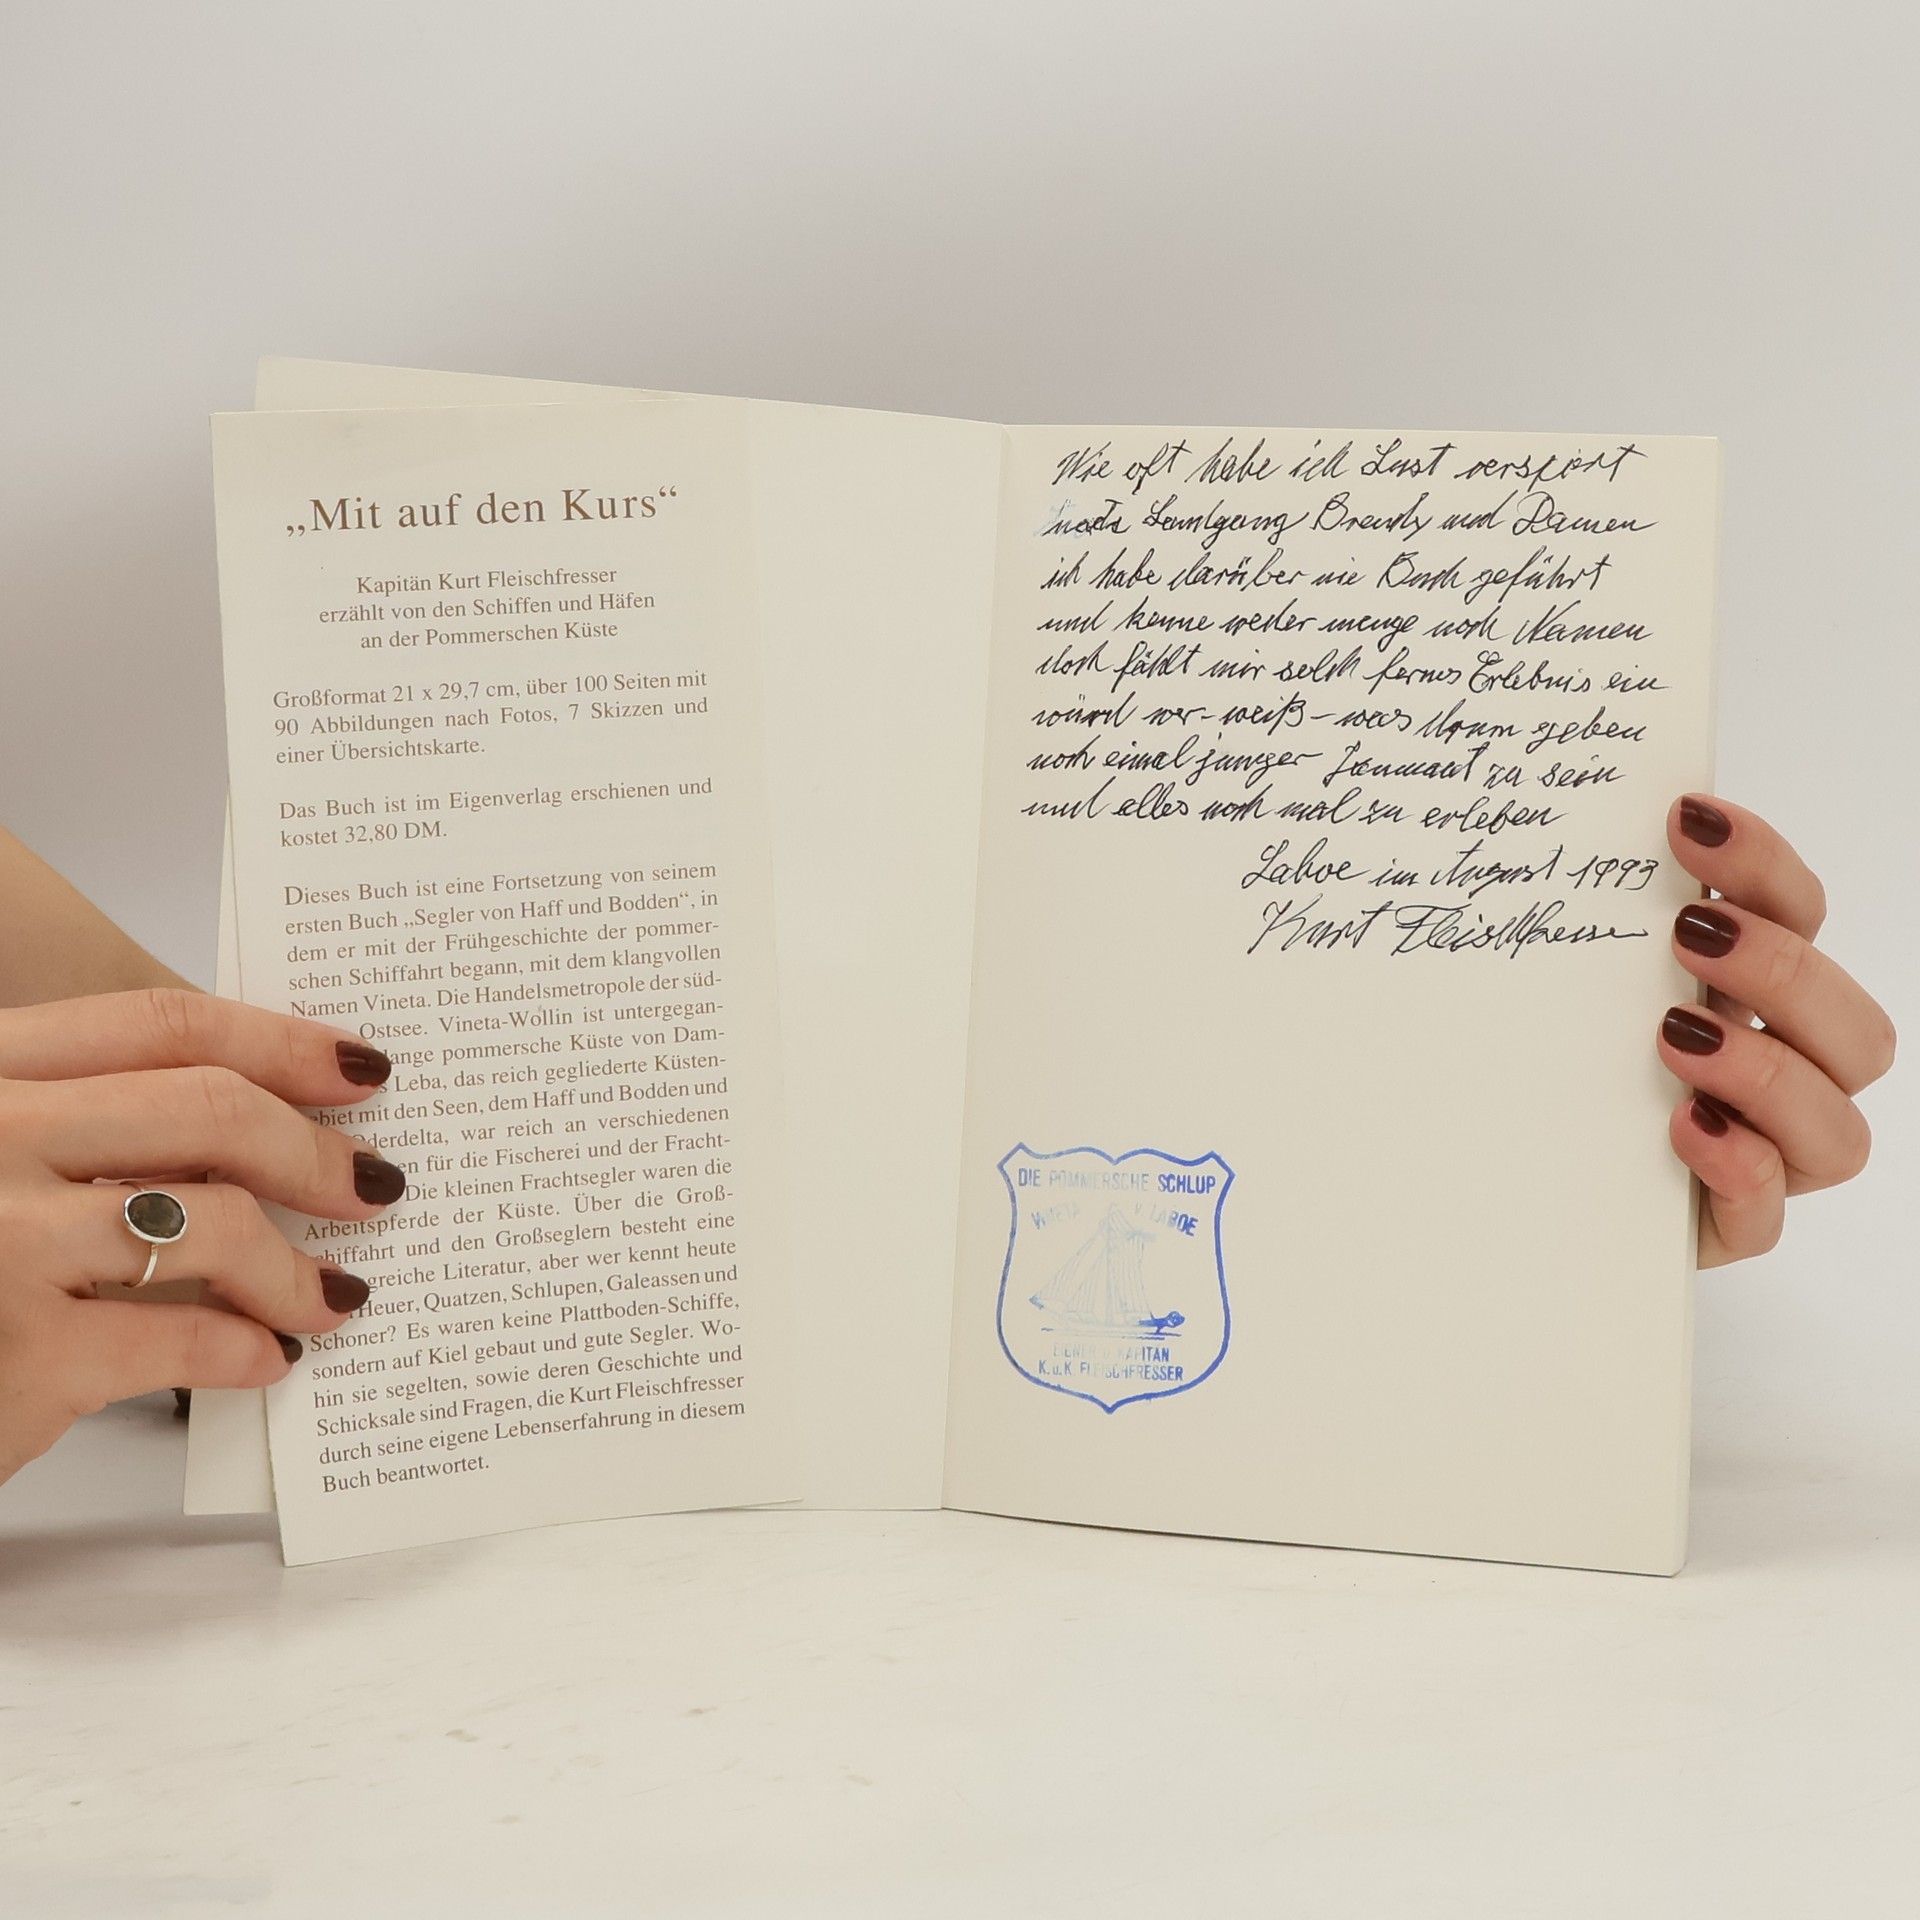 „Mit auf den Kurs“
Kapitän Kurt Fleischfresser
erzählt von den Schiffen und Häfen
an der Pommerschen Küste
Großformat 21 x 29,7 cm, über 100 Seiten mit
90 Abbildungen nach Fotos, 7 Skizzen und
einer Übersichtskarte.
Das Buch ist im Eigenverlag erschienen und
kostet 32,80 DM.
Dieses Buch ist eine Fortsetzung von seinem
ersten Buch „Segler von Haff und Bodden“, in
dem er mit der Frühgeschichte der pommer-
schen Schiffahrt begann, mit dem klangvollen
Namen Vineta. Die Handelsmetropole der süd-
Ostsee. Vineta-Wollin ist untergegan-
lange pommersche Küste von Dam-
s Leba, das reich gegliederte Küsten-
ebiet mit den Seen, dem Haff und Bodden und
derdelta, war reich an verschiedenen
en für die Fischerei und der Fracht-
Die kleinen Frachtsegler waren die
Arbeitspferde der Küste. Über die Groß-
chiffahrt und den Großseglern besteht eine
greiche Literatur, aber wer kennt heute
Heuer, Quatzen, Schlupen, Galeassen und
Schoner? Es waren keine Plattboden-Schiffe,
sondern auf Kiel gebaut und gute Segler. Wo-
hin sie segelten, sowie deren Geschichte und
Schicksale sind Fragen, die Kurt Fleischfresser
durch seine eigene Lebenserfahrung in diesem
Buch beantwortet.
Wie oft habe ich Lust verspört
nach Landgang Brendy und Damen
ich habe darüber nie Buch geführt
und kenne weder menge noch Namen
doch fählt mir solch fernes Erlebnis ein
würd wer-weiß-was drum geben
noch einmal junger Janmaat zu sein
und alles noch mal zu erleben
Laboe im August 1993
Kurt Fleischfresser
DIE POMMERSCHE SCHLUP
VINETA V. LABOE
EIGNER U. KAPITAN
K. u. K. FLEISCHFRESSER